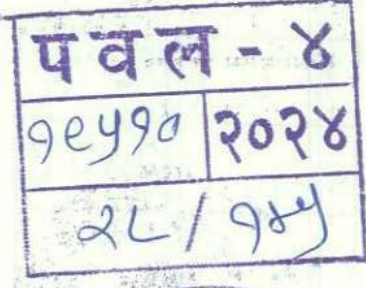 पवल - ४
१९५१० २०२४
२८ / १४५